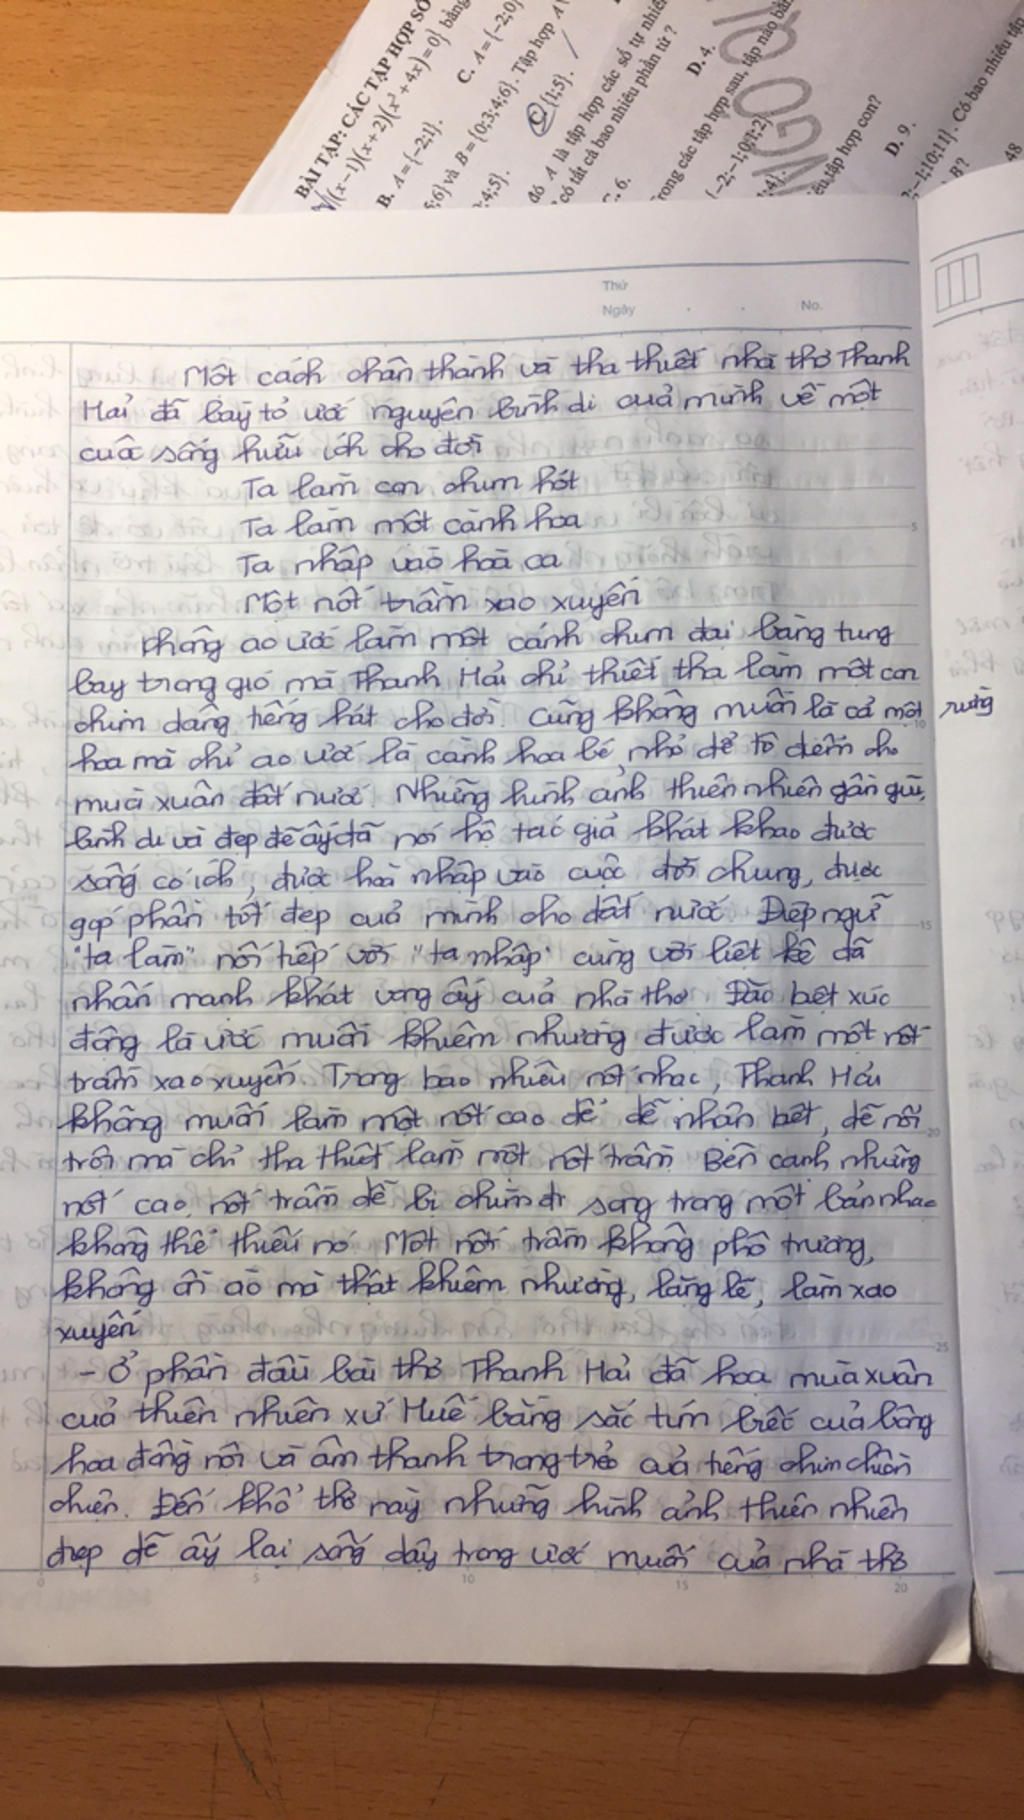 BÀI TẬP: CÁC TẬP HỢP SỐ
(x-1)(x+2)(x³+4x)=0} bằng
B. A={-2;1}.
C. A={-2;0}
;6} và B={0;3;4;6}. Tập hợp A\
;4;5}.
C. {1;5}.
đó A là tập hợp các số tự nhiên
có tất cả bao nhiêu phần tử ?
C. 6.
D. 4.
rong các tập hợp sau, tập nào bằ
{-2;-1;0;1;2}
tập hợp con?
D. 9.
;-1;10;11}. Có bao nhiêu tập
B?
48
Thứ
Ngày . . No.
Một cách chân thành và tha thiết nhà thơ Thanh
Hải đã bày tỏ ước nguyện bình dị của mình về một
cuộc sống hữu ích cho đời
Ta làm con chim hót
Ta làm một cành hoa
Ta nhập vào hoà ca
Một nốt trầm xao xuyến
Không ao ước làm một cánh chim đại bàng tung
bay trong gió mà Thanh Hải chỉ thiết tha làm một con
chim dâng tiếng hát cho đời. Cũng không muốn là cả một rừng
hoa mà chỉ ao ước là cành hoa bé nhỏ để tô điểm cho
mùa xuân đất nước. Những hình ảnh thiên nhiên gần gũi,
bình dị và đẹp đẽ ấy đã nói hộ tác giả khát khao được
sống có ích, được hoà nhập vào cuộc đời chung, được
góp phần tốt đẹp của mình cho đất nước. Điệp ngữ
"ta làm" nối tiếp với "ta nhập" cùng với liệt kê đã
nhấn mạnh khát vọng ấy của nhà thơ. Đào biệt xúc
động là ước muốn khiêm nhường được làm một nốt
trầm xao xuyến. Trong bao nhiêu nốt nhạc, Thanh Hải
không muốn làm một nốt cao để dễ nhận biết, dễ nổi
trội mà chỉ tha thiết làm một nốt trầm. Bên cạnh những
nốt cao, nốt trầm dễ bị chìm đi song trong một bản nhạc
không thể thiếu nó. Một nốt trầm không phô trương,
không ồn ào mà thật khiêm nhường, lặng lẽ, làm xao
xuyến
- Ở phần đầu bài thơ Thanh Hải đã hoạ mùa xuân
của thiên nhiên xứ Huế bằng sắc tím biếc của bông
hoa đồng nội và âm thanh trong trẻo của tiếng chim chiền
chiện. Đến khổ thơ này những hình ảnh thiên nhiên
đẹp đẽ ấy lại sống dậy trong ước muốn của nhà thơ
5
10
15
20
25
0 5 10 15 20